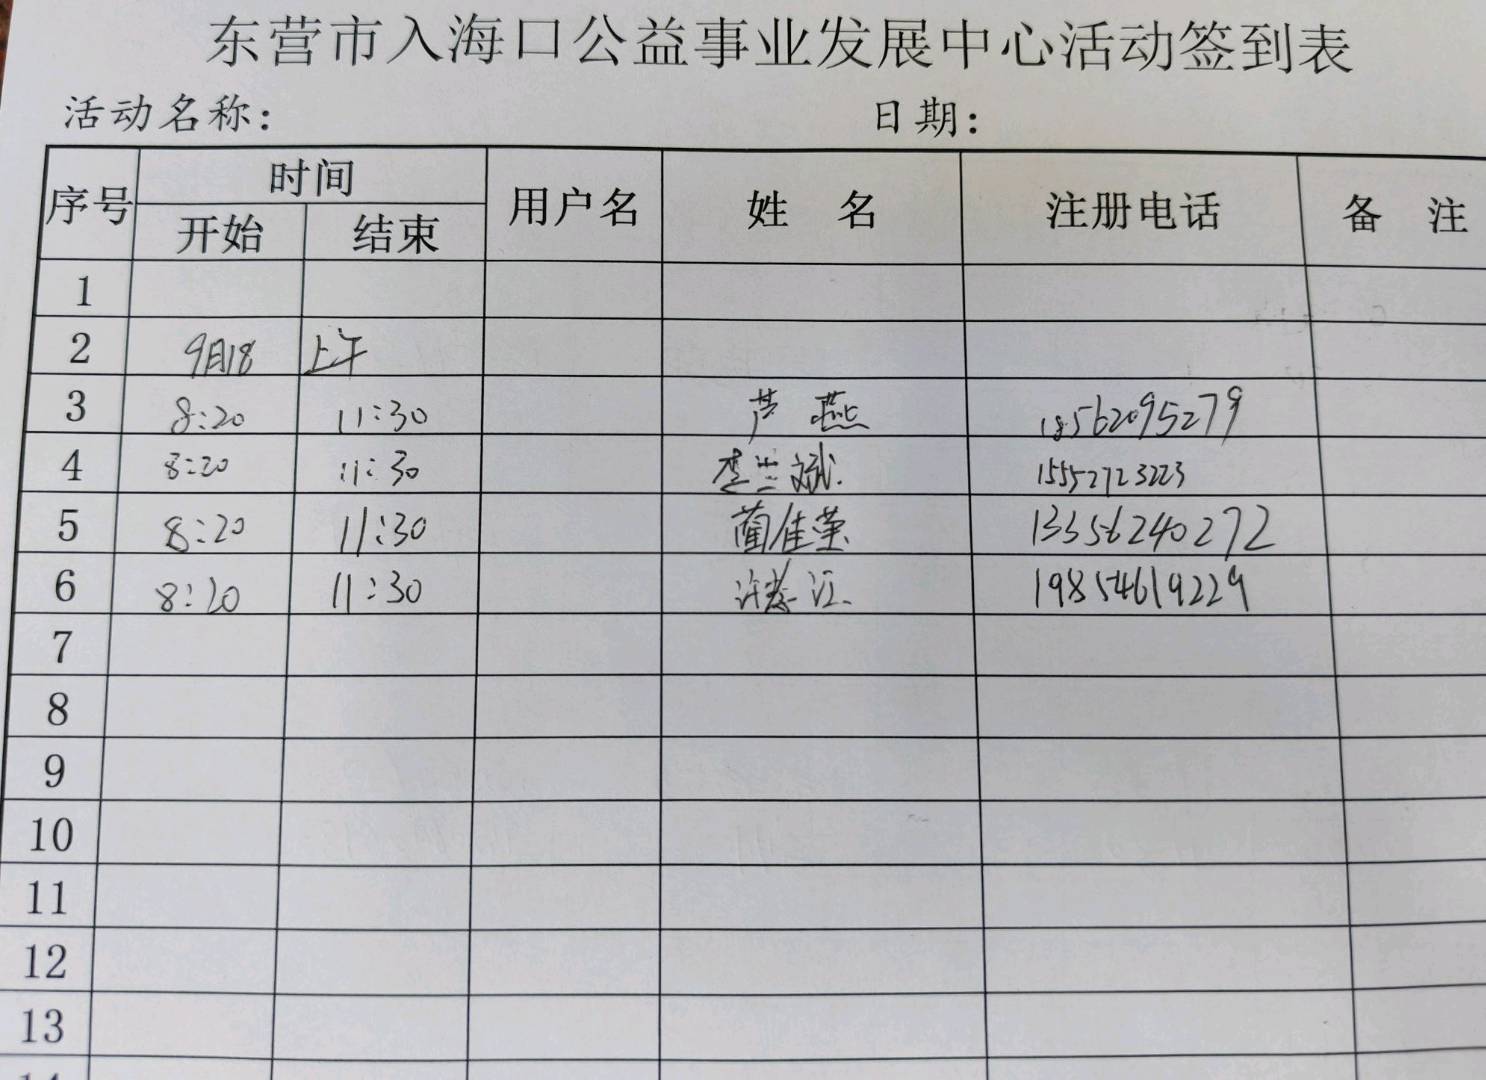 东营市入海口公益事业发展中心活动签到表
活动名称: 日期:
序号 时间 用户名 姓 名 注册电话 备 注
开始 结束
1
2 9月18 上午
3 8:20 11:30 芦 燕 18562095279
4 8:20 11:30 李兰斌 15552723223
5 8:20 11:30 蔺佳莹 13356240272
6 8:20 11:30 许 江 19854619229
7
8
9
10
11
12
13